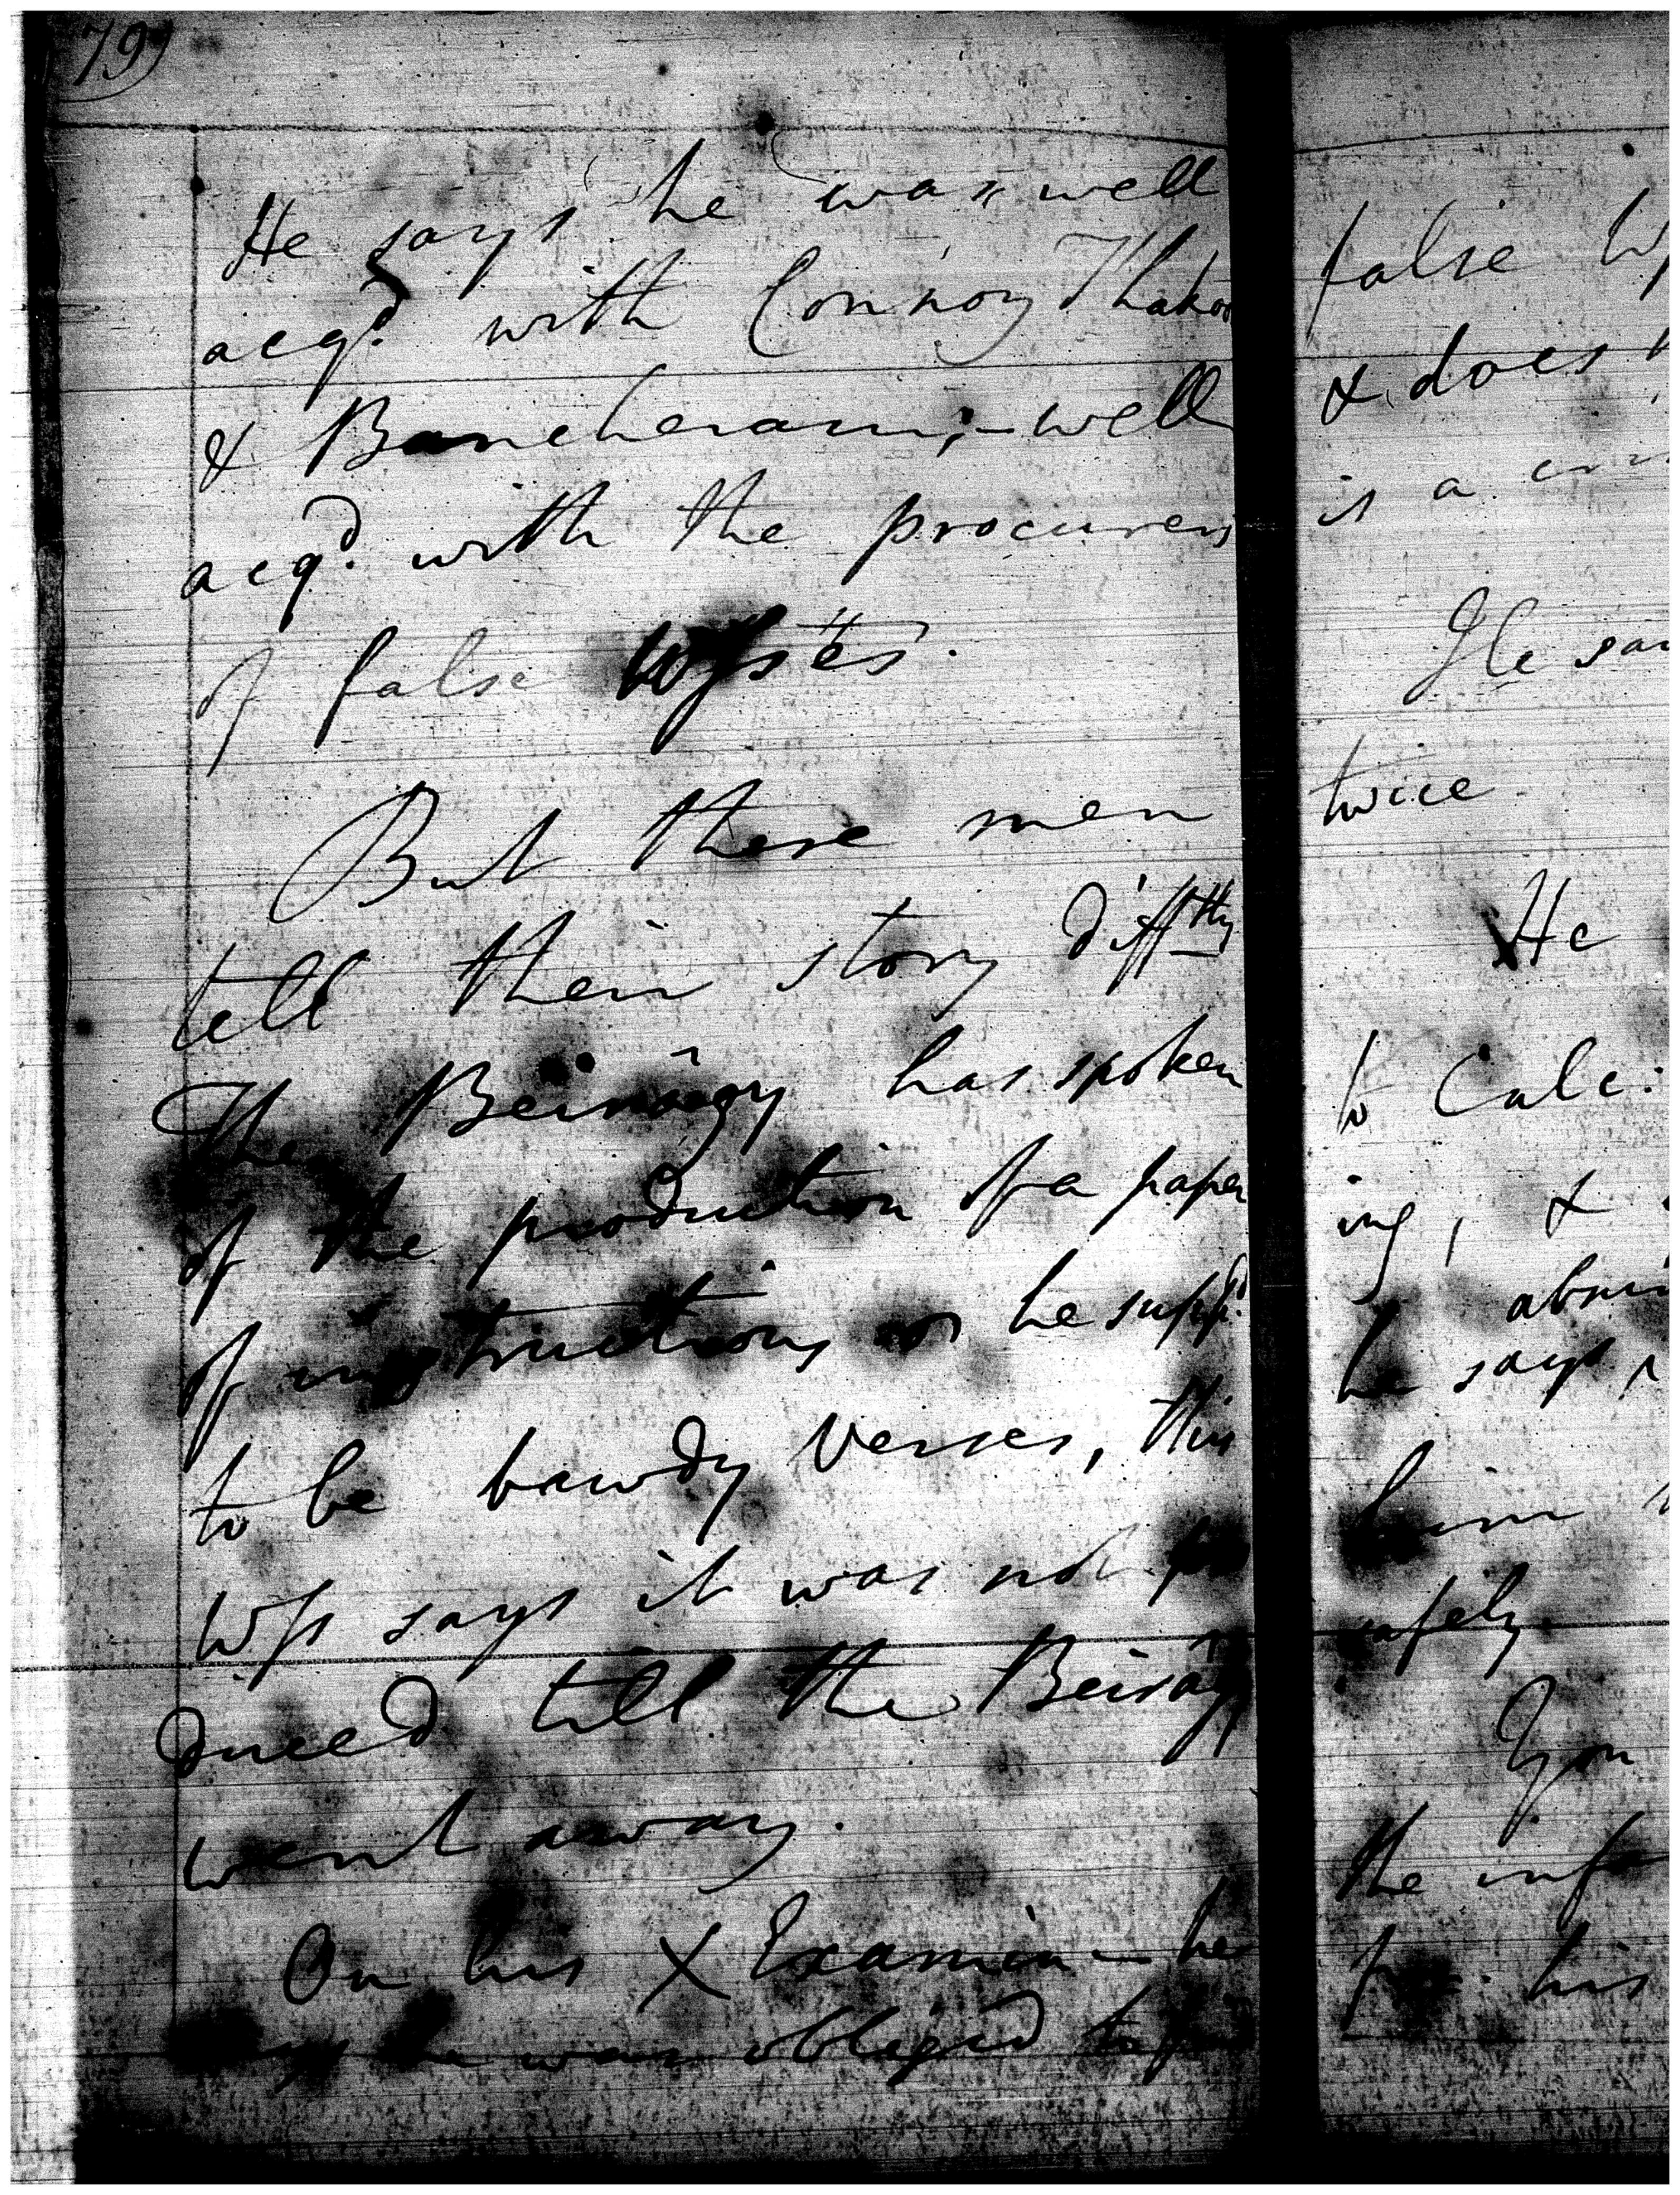 79
He says he was well
acqd. with Connoy Thakoo
& Bancheram;—well
acqd. with the procurers
of false Wsses.
But these men
tell their story difftly
The Beiragy has spoken
of the production of a paper
of instructions wh he suppd.
to be bawdy verses, this
Wss says it was not pro
duced till the Beirag
went away.
On his X Examin— he
says he was obliged to
false W
& does
is a
He sa
twice
He
to Calc:
ing, &
he says,
him
safely.
You
the info
his